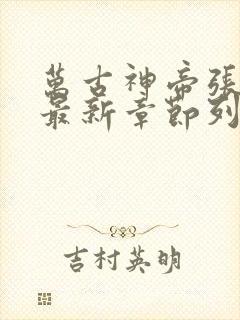 萬古神帝張
最新章節列
吉村英明